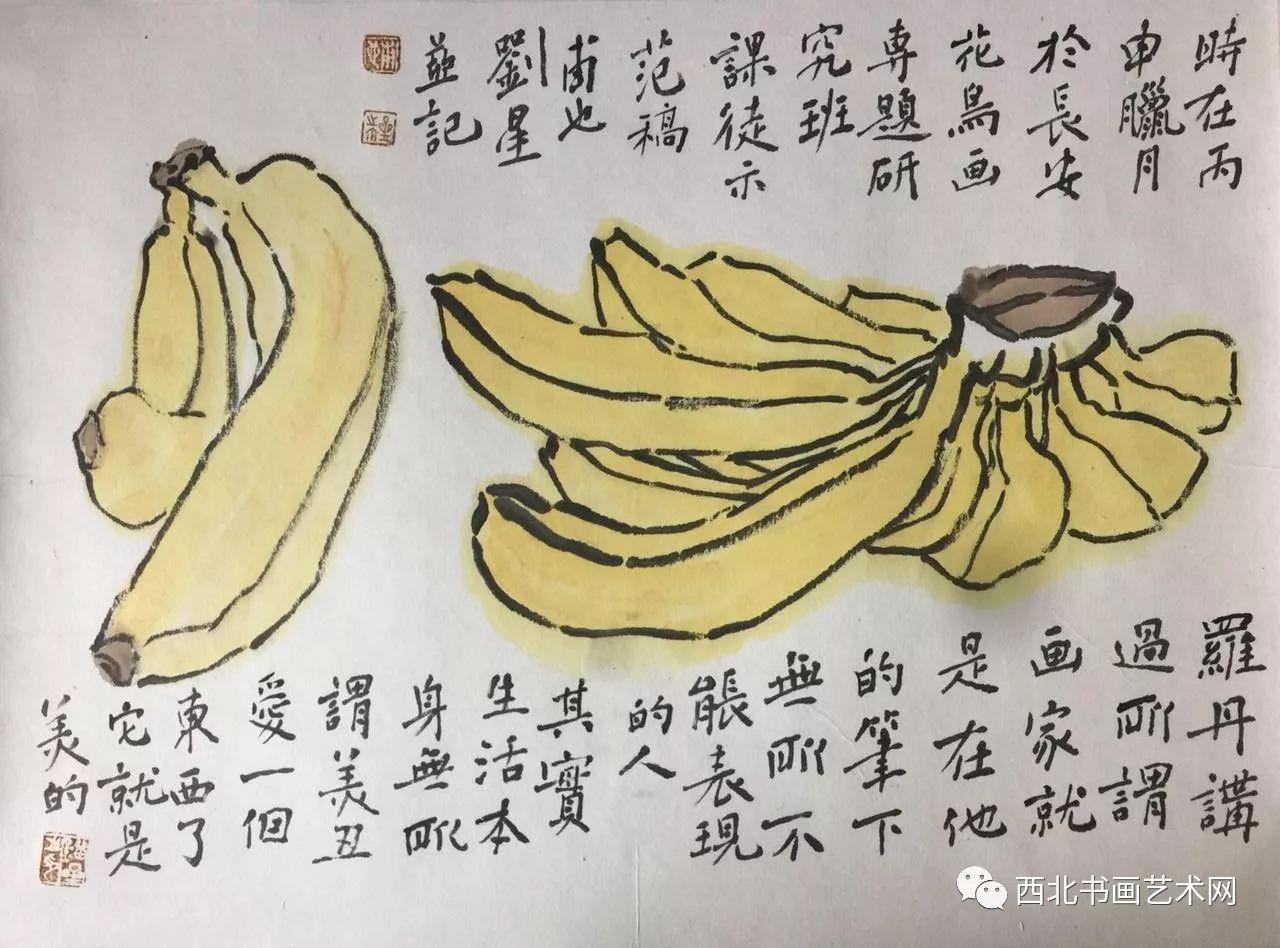 時在丙
申臘月
於長安
花鳥画
専題研
究班
課徒示
范稿
甫也
劉星
並記
羅丹講
過所謂
画家就
是在他
的筆下
無所不
能表現
的人
其實
生活本
身無所
謂美丑
愛一個
東西了
它就是
美的
西北书画艺术网